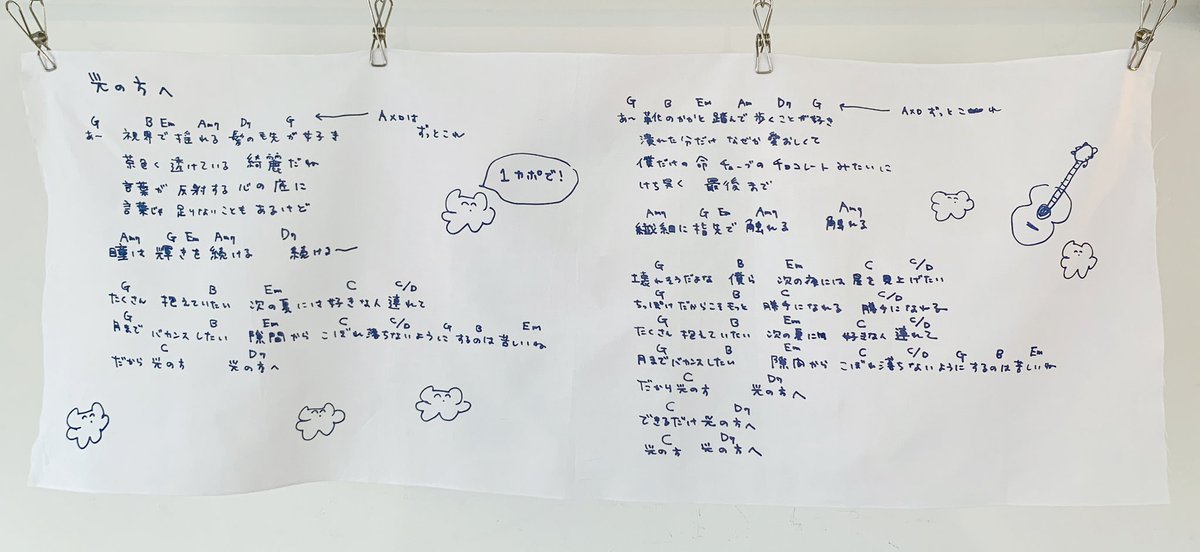 光の方へ
G B Em Am7 D7 G ← Aメロは
ずっとこれ
あ〜 視界で揺れる 髪の毛先が好き
茶色く透けている 綺麗だね
言葉が反射する心の底に
言葉じゃ足りないこともあるけど
1カポで!
Am7 G Em Am7 D7
瞳は輝きを続ける 続ける〜
G B Em C C/D
たくさん抱えていたい 次の夏には好きな人連れて
G B Em C C/D G B Em
月までバカンスしたい 隙間からこぼれ落ちないようにするのは苦しいね
C D7
だから光の方 光の方へ
G B Em Am D7 G ← Aメロずっとこれ
あ〜 靴のかかと踏んで歩くことが好き
潰れた分だけなぜか愛おしくて
僕だけの命 チューブのチョコレートみたいに
けち臭く 最後まで
Am7 G Em Am7 Am7
繊細に指先で触れる 触れる
G B Em C C/D
壊れそうだよな 僕ら 次の夜には星を見上げたい
G B C C/D
ちっぽけだからこそもっと 勝手になれる 勝手になれる
G B Em C C/D
たくさん抱えていたい 次の夏には 好きな人連れて
G B Em C C/D G B Em
月までバカンスしたい 隙間からこぼれ落ちないようにするのは苦しいね
C D7
だから光の方 光の方へ
C D7
できるだけ光の方へ
C D7
光の方 光の方へ